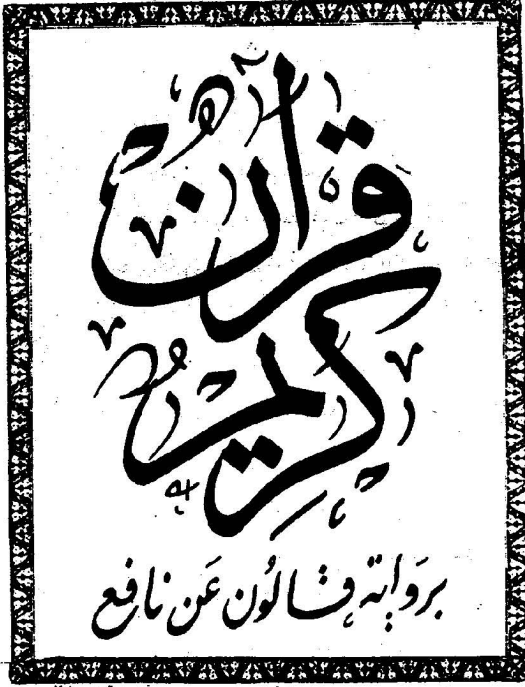 قرآن
كريم
برواية قالون عن نافع